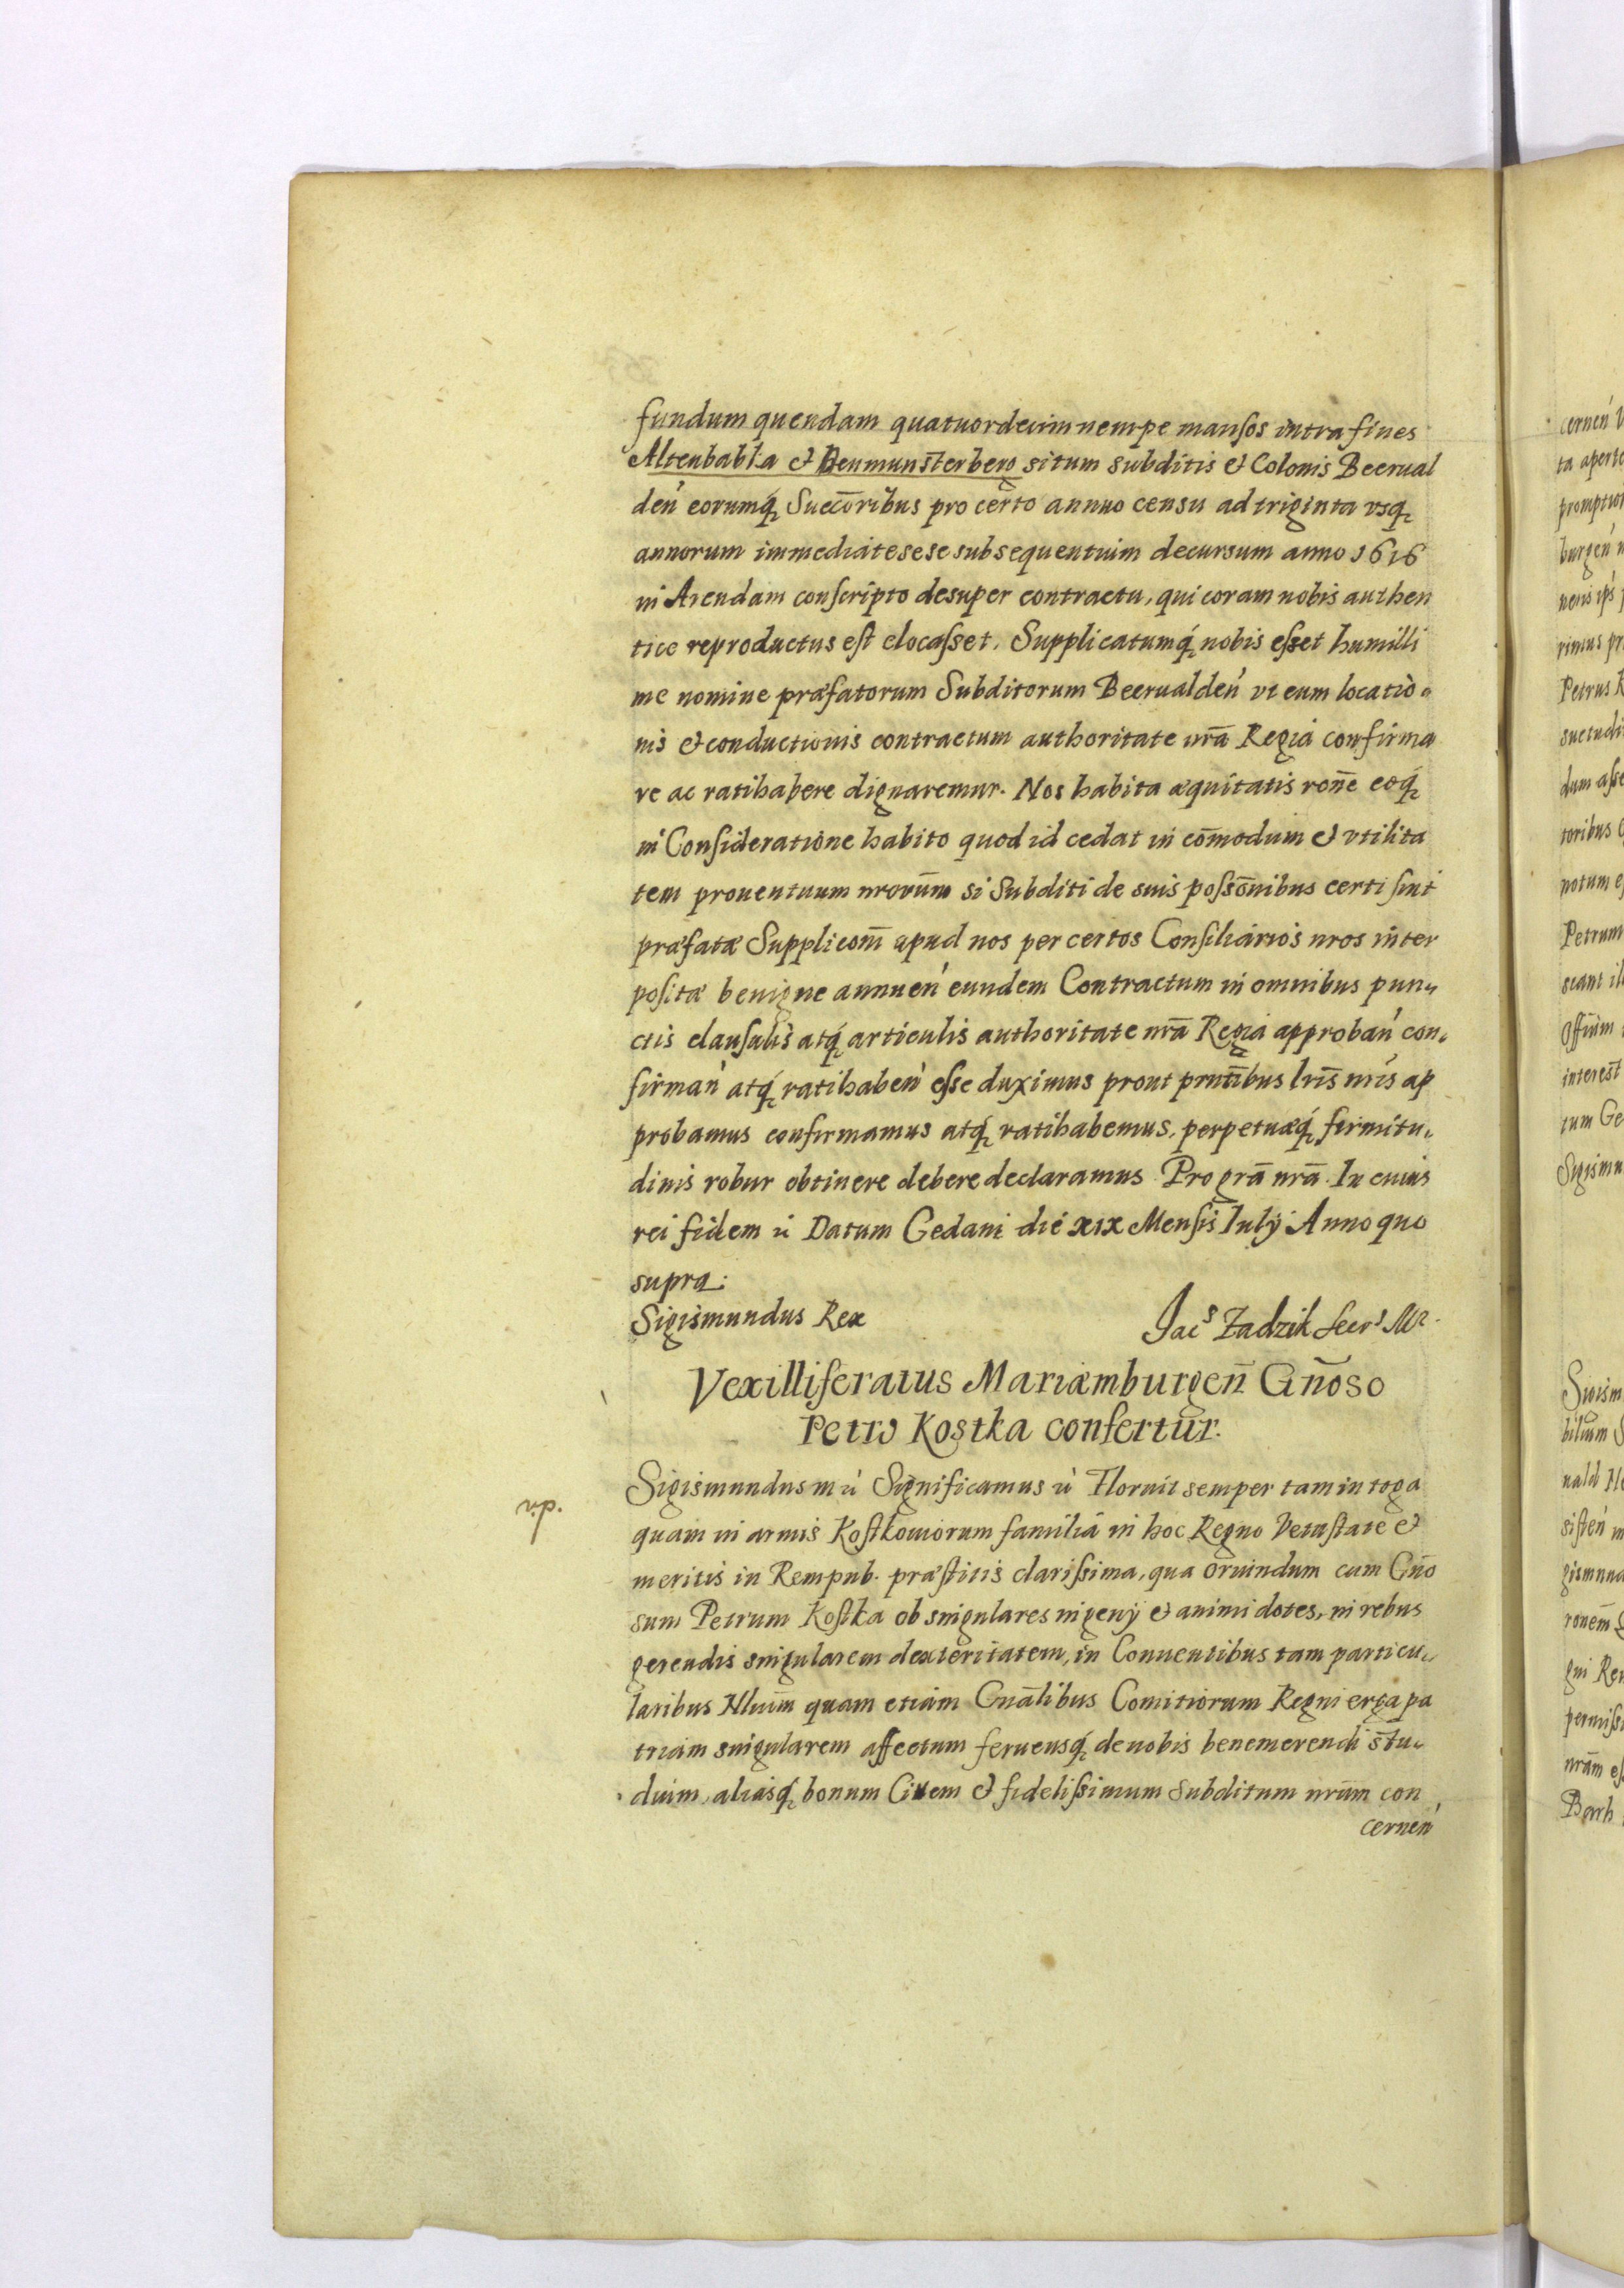 fundum quendam quatuordecim nempe mansos intra fines
Altenbabka et Beumunsterberg situm subditis et Colonis Beerual
den̄ eorumq́ Succōribus pro certo annuo censu ad triginta vsq́
annorum immediate sese subsequentium decursum anno 1616
in Arendam conscripto desuper contractu, qui coram nobis authen
tice reproductus est elocasset. Supplicatumq́ nobis esset humilli
me nomine præfatorum Subditorum Beerualden̄ vt eum locatio„
nis et conductionis contractum authoritate nr̄a Regia confirma
re ac ratihabere dignaremur. Nos habita æquitatis ron̄e eoq́
in Consideratione habito quod id cedat in com̄odum et vtilita
tem prouentuum nrorum̄ si Subditi de suis possōnibus certi sint
præfatæ Supplicōni apud nos per certos Consiliarios nros inter
positæ benigne annuen̄ eundem Contractum in omnibus pun„
ctis clausulis atq́ articulis authoritate nr̄a Regia approban̄ con„
firman̄ atq́ ratihaben̄ esse duximus prout prn̄tibus lr̄is nr̄is ap
probamus confirmamus atq́ ratihabemus, perpetuæq́ firmitu„
dinis robur obtinere debere declaramus Pro gr̄a nr̄a. In cuius
rei fidem ū Datum Gedani die xix Mensis Iulij Anno quo
supra.
Sigismundus Rex Jac⁠s Zadzik Secr⁠s Mr.
Vexilliferatus Mariæmburgen̄ Gn̄oso
Petro Kostka confertur.
v.p.
Sigismundus m ū Significamus ū Floruit semper tam in toga
quam in armis Kostkowiorum familia in hoc Regno Vetustate et
meritis in Rempub. præstitis clarissima, qua oriundum cum Gn̄o
sum Petrum Kostka ob singulares ingenij et animi dotes, in rebus
gerendis singularem dexteritatem, in Conuentibus tam particu„
laribus quam etiam Gn̄alibus Comitiorum Regni erga pa
triam singularem affectum feruensq́ de nobis benemerendi stu„
dium, aliasq́ bonum Ciuem et fidelissimum Subditum nrūm con
cernen̄